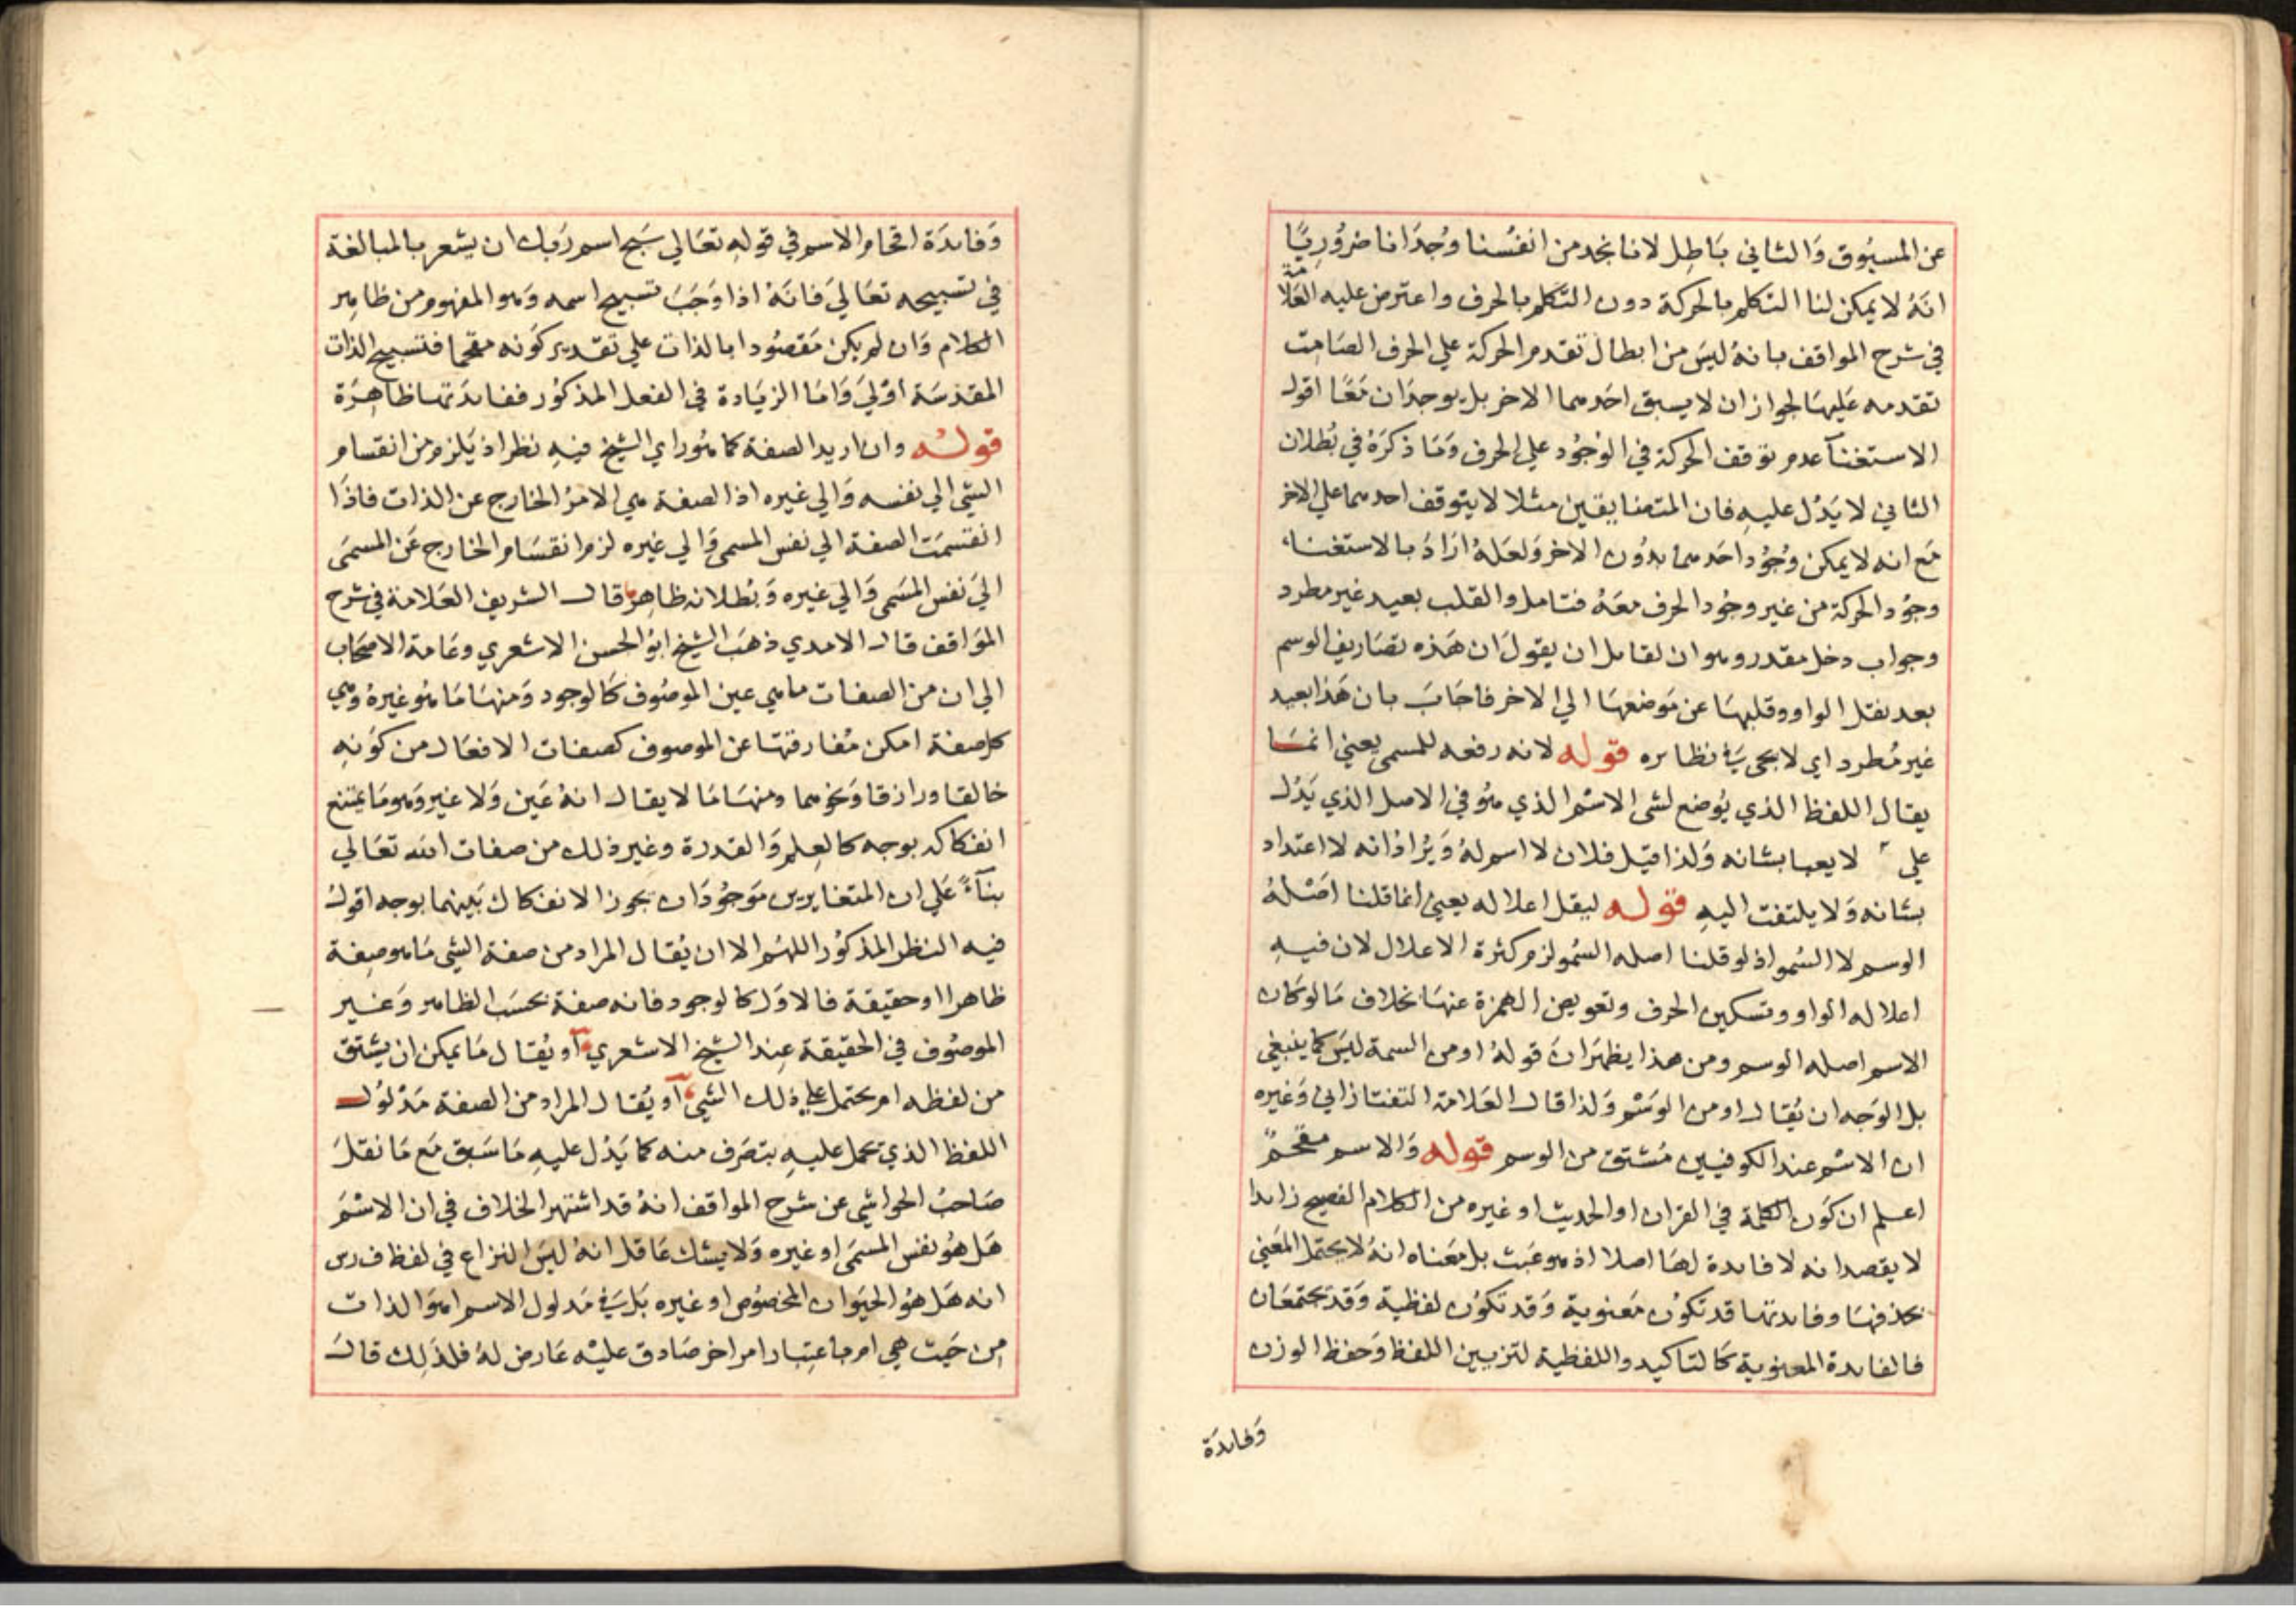 عن المسبوق وَالثاني بَاطِل لانا نجد من انفُسنا وُجدَانا ضرُورِيًّا
انهُ لا يمكن لنا التكلم بالحركة دون التكلم بالحرف واعترض عليه العَلامة
في شرح المواقف بانهُ ليسَ من ابطال تقدم الحركة علي الحرف الصَامت
تقدمه عَليهَا لجواز ان لا يسبق احَدهما الاخر بل يوجدَان مَعًا اقول
الاستغنآ عدم توقف الحركة في الوُجُود علي الحرف وَمَا ذكرَهُ في بُطلان
الثاني لا يَدُل عليهِ فان المتضايقين مثلا لا يتوقف احدهما علي الاخر
مَع انه لا يمكن وُجُود احَدهما بدُون الاخر وَلعَلهُ ارَادَ بالاستغناء
وجُود الحركة من غير وجُود الحرف معَهُ فتامل والقلب بعيد غير مطرد
وجواب دخل مقدر وهو ان لقايل ان يقولَ ان هَذه تصَاريف الوسم
بعد نقل الواو وقلبهَا عن مَوضعهَا الي الاخر فاجَابَ بان هَذا بعيد
غير مُطرد اي لا يجي في نظايره قوله لانه رفعه للمسمي يعني انمَا
يقال اللفظ الذي يُوضع لشي الاسْم الذي هُو في الاصل الذي يَدُل
علي لا يعبا بشانه وَلذا قيَل فلان لا اسم لهُ وَيُرَادُ انه لا اعتداد
بشانه وَلا يلتفت اليهِ قوله ليقل اعلاله يعني انما قلنا اصْلهُ
الوسم لا السُمو اذ لو قلنا اصله السُمو لزم كثرة الاعلال لان فيهِ
اعلاله الواو وتسكين الحرف وتعويض الهمزة عنهَا بخلاف مَا لو كان
الاسم اصله الوسم ومن هذا يظهَر انَ قولهُ او من السمة ليسَ كما ينبغي
بل الوَجه ان يُقال او من الوَسْم وَلذا قال العَلامة التفتازاني وَغيره
ان الاسْم عند الكوفيين مُشتق من الوسم قوله وَالاسم مقحمٌ
اعلم ان كَون الكلمة في القران او الحديث او غيره من الكلام الفصيح زايدا
لا يقصد انه لا فايدة لهَا اصلا اذ هو عَبَث بل مَعناه انهُ لا يختل المعَني
بحذفهَا وفايدتها قد تكوُن مَعنوية وَقد تكوُن لفظية وَقد يجتمعَان
فالفايدة المعنوية كَالتاكيد واللفظية لتزيين اللفظ وَحفظ الوزن
وَفايدَة
وَفايدَة اقحام الاسم في قوله تعَالي سَبح اسم رَبك ان يشعر بالمبالغة
في تسبيحه تعَالي فَانهُ اذا وَجَبَ تسبيح اسمه وَهو المفهوم من ظاهِر
الكلام وَان لم يكن مَقصُودا بالذات علي تقدير كَونه مقحما فتسبيح الذات
المقدسَة اوْلي وَامَا الزيَادة في الفعل المذكوُر ففايدَتها ظاهِرَة
قولهُ وان اريد الصفة كما هُو راي الشيخ فيهِ نظر اذ يَلزم من انقسام
الشي الي نفسه وَالي غيره اذ الصفة هي الامرُ الخارج عن الذات فاذَا
انقسمَت الصفة الي نفس المسمي وَالي غيره لزم انقسَام الخارج عَن المسمَي
اليَ نفس المسَمي وَالي غيره وَبُطلانه ظاهر قال الشريف العَلامة في شرح
المَوَاقف قال الامدي ذهَبَ الشيخ ابوُ الحسن الاشعري وعَامة الاصحَاب
الي ان من الصفات ما هي عين الموصُوف كَالوجود وَمنهَا مَا هُو غيرهُ وَهي
كل صفة امكن مُفارقتهَا عن الموصوف كصفات الافعَال من كَونهِ
خالقا ورازقا وَنحوهما ومنهَا مَا لا يقال انهُ عَين وَلا غير وَهو مَا يمتنع
انفكاكه بوجه كالعِلم وَالقدرة وغير ذلك من صفات الله تعَالي
بنآءً عَلي ان المتغايرين مَوجُودَان يجوز الانفكاك بَينهما بوجه اقول
فيه النظر المذكوُر اللهُم الا ان يُقال المراد من صفة الشي مَا هو صِفة
ظاهرا او حقيقة فالاوَل كالوجود فانه صفة بحسَب الظاهر وَغير
الموصُوف في الحقيقة عِند الشيخ الاشعري اَو يُقال مَا يمكن ان يشتق
من لفظه امر يحتمل علي ذلك الشي اَو يُقال المراد من الصفة مَدْلوُل
اللفظ الذي يحمل عليهِ بتصَرف منه كما يَدُل عليهِ مَا سَبق مَع مَا نقلَ
صَاحبُ الحواشي عن شرح المواقف انهُ قد اشتهر الخلاف في ان الاسْمَ
هَل هُو نفس المسمَي او غيره وَلا يشك عَاقل انهُ ليسَ النزاع في لفظ فرس
انه هَل هُو الحيَوان المخصُوص او غيره بَل في مَدلول الاسم اهوَ الذات
من حَيث هي ام باعتِبار امر اخر صَادق عليْه عَارض لهُ فلذَلِك قالَ